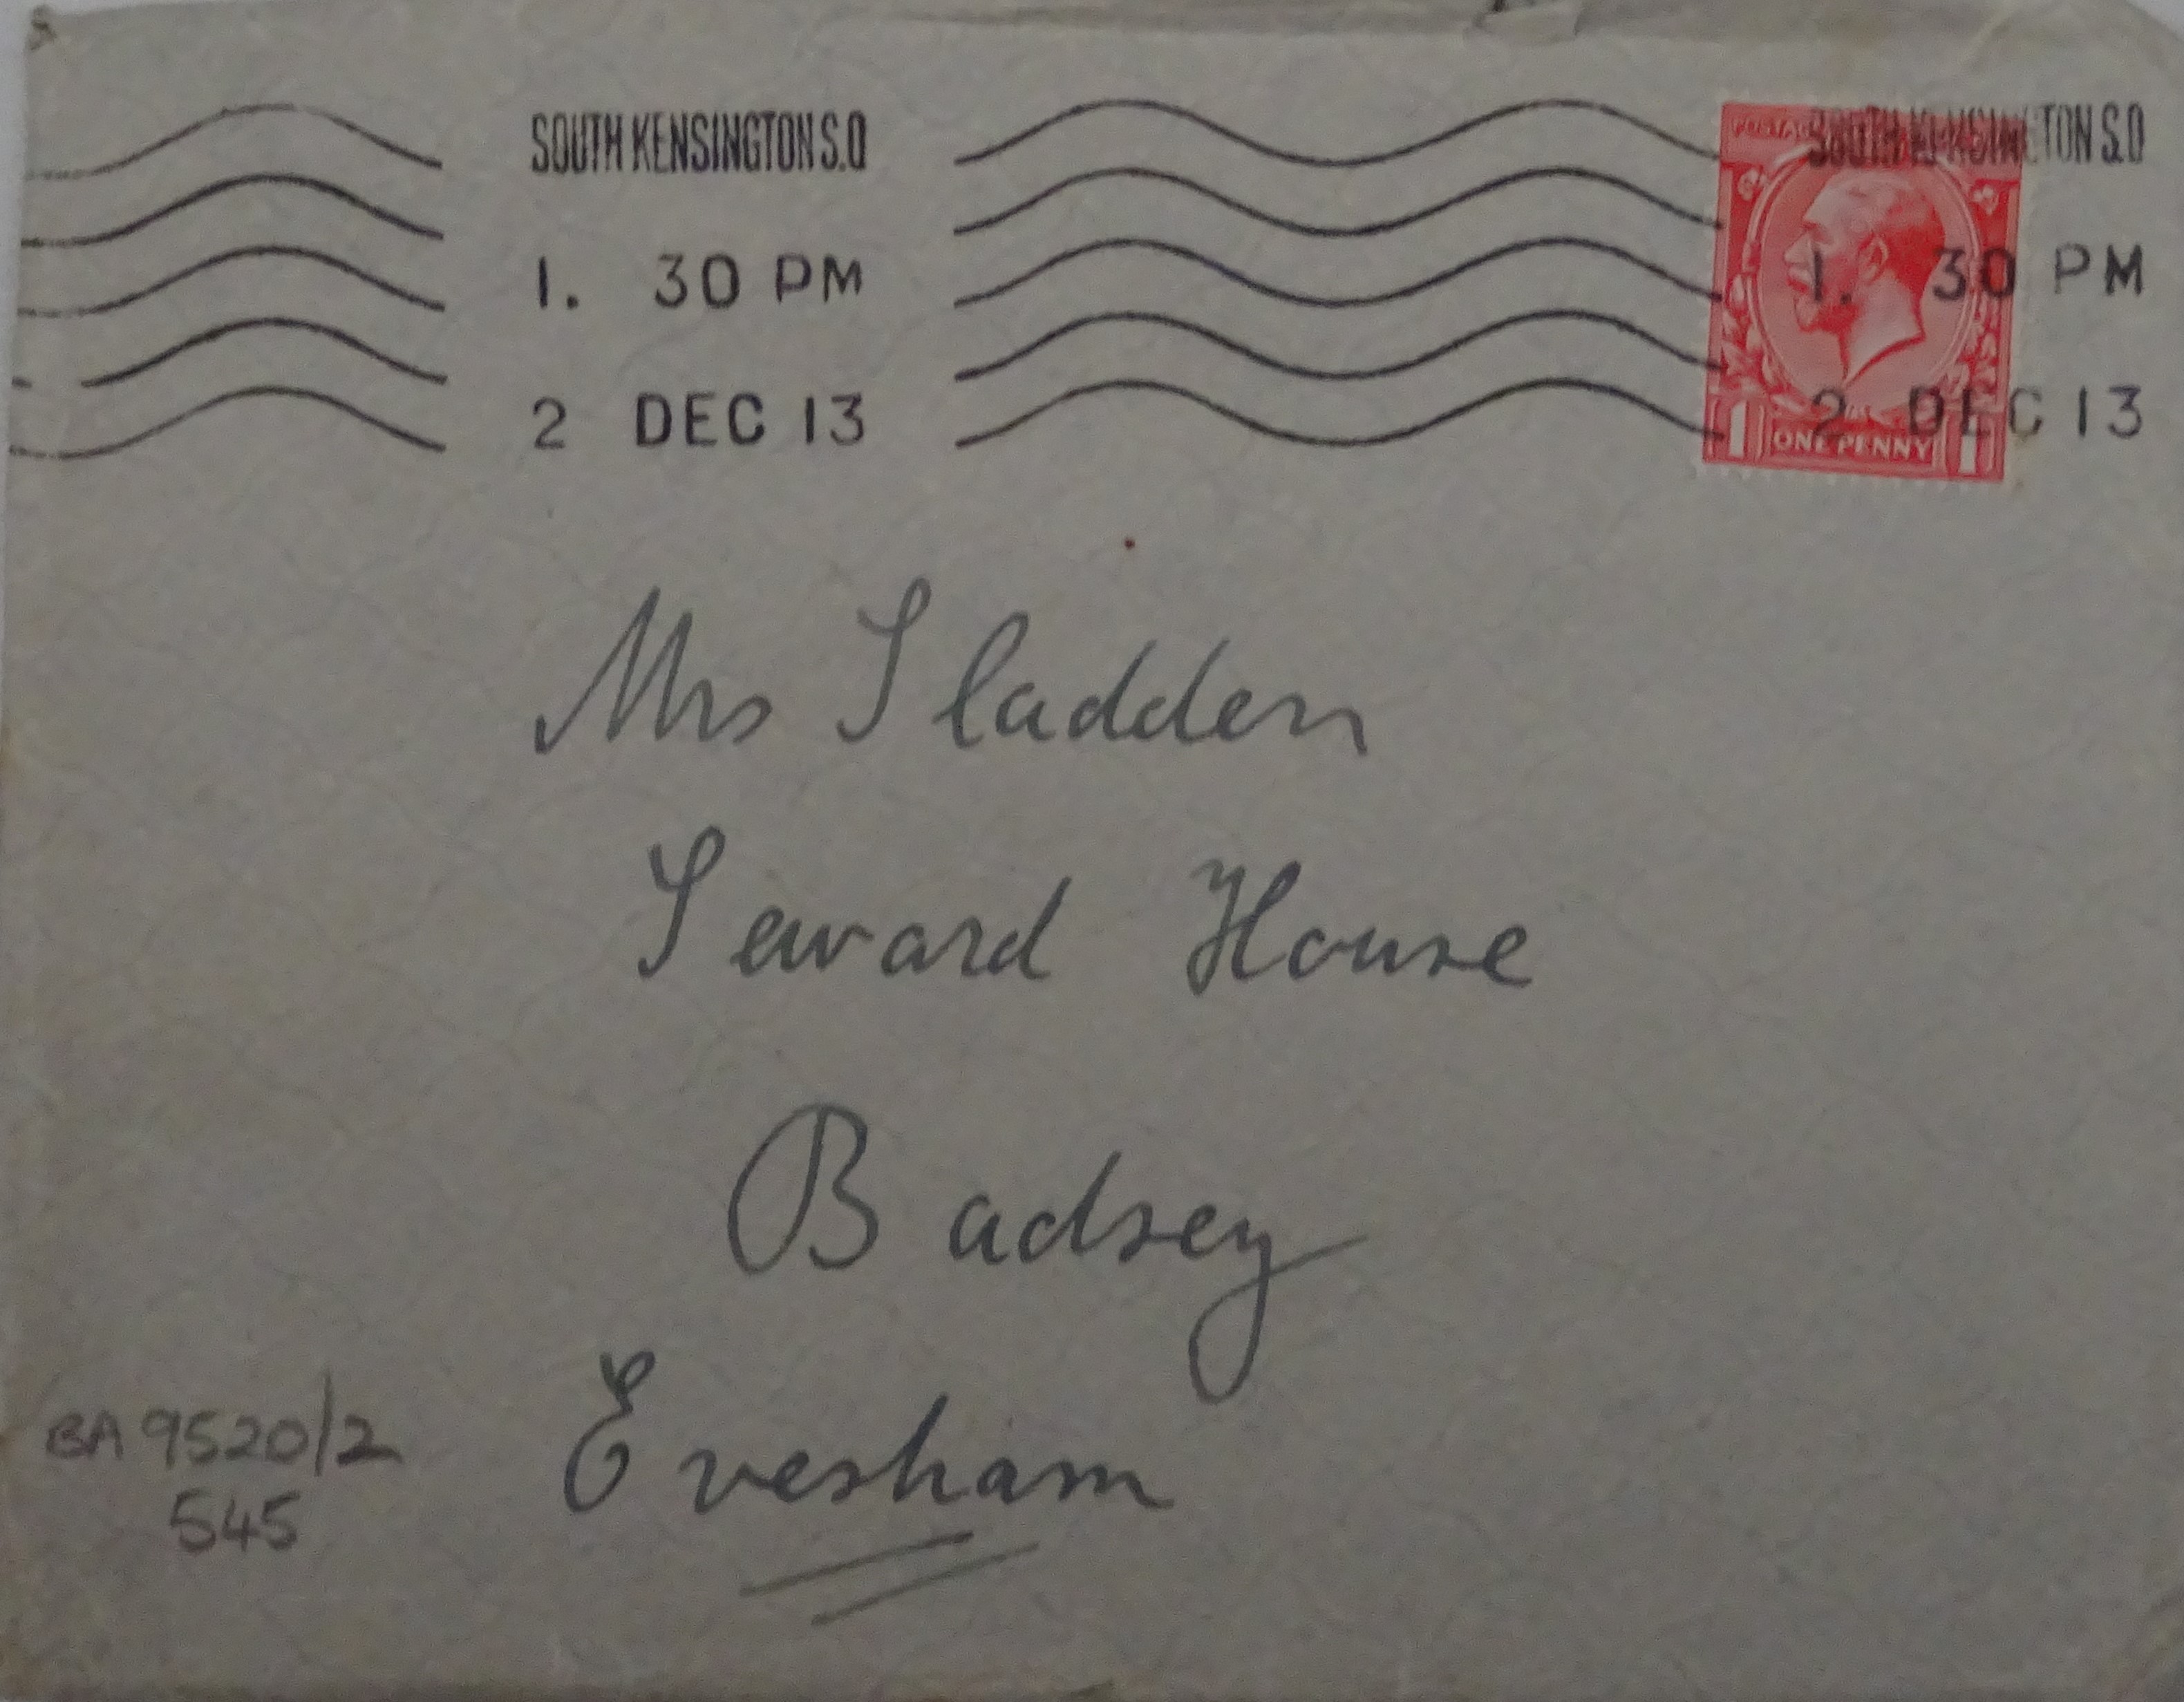 SOUTH KENSINGTON S.O SOUTH KENSINGTON S.O
1. 30 PM 1. 30 PM
2 DEC 13 2 DEC 13
1 ONE PENNY 1
Mrs Sladden
Seward House
Badsey
Evesham
BA 9520/2
545